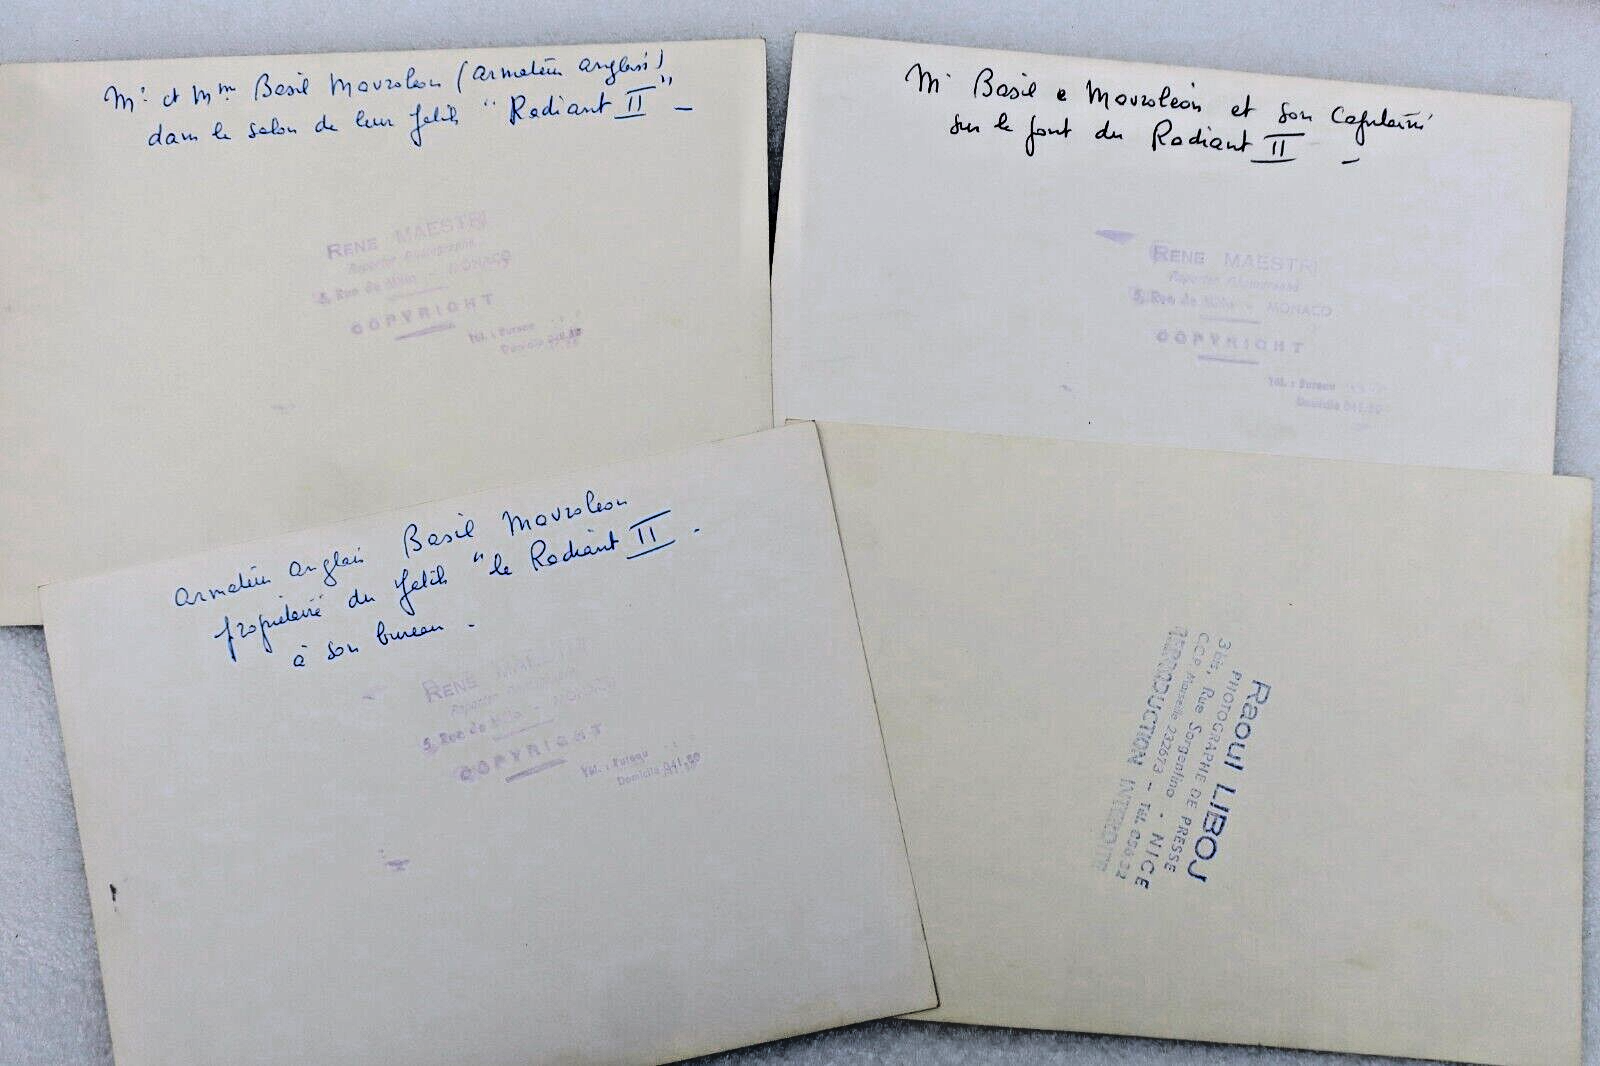 Mr et Mme Basil Mavroleon (armateur anglais)
dans le salon de leur yatch "Radiant II" -
RENE MAESTRI
Reporter Photographe
5, Rue de Millo - MONACO
COPYRIGHT
Tél. : Bureau
Domicile 041.80
Mr Basil e Mavroléon et son Capitaine
sur le pont du Radiant II -
RENE MAESTRI
Reporter Photographe
5, Rue de Millo - MONACO
COPYRIGHT
Tél. : Bureau
Domicile 041.80
armateur anglais Basil Mavroleon
propriétaire du yatch "le Radiant II .
à son bureau .
RENE
Reporter
5, Rue de Millo - MONACO
COPYRIGHT
Tél. : Bureau
Domicile 041.80
Raoul LIBOJ
PHOTOGRAPHE DE PRESSE
3 bis, Rue Sorgentino - NICE
CCP. Marseille 232673 - Tél.
REPRODUCTION INTERDITE